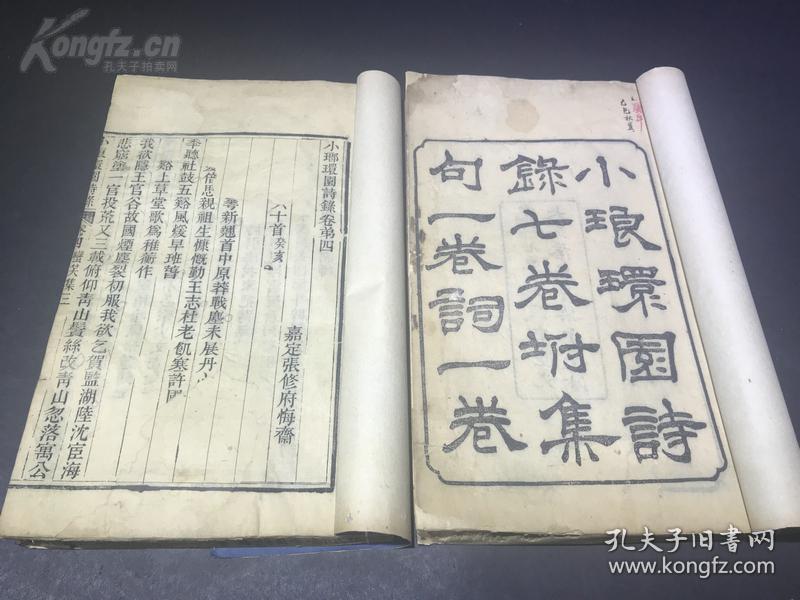 Kongfz.cn
孔夫子拍卖网
小琅環園詩
錄七卷坿集
句一卷詞一卷
小瑯環園詩錄卷弟四
嘉定張修府悔齋
八十首癸亥
新翹首中原莽戰塵未展丹
思親祖生慷慨勤王志杜老飢寒許
季聽社鼓五谿風煖早班春
谿上草堂歌爲稚衡作
我欲隱王官谷故國煙塵裂初服我欲乞賀監湖陸沈宦海
悲窮塗一官投荒又三載俯仰青山鬢絲改青山忽落寓公
孔夫子旧书网
www.kongfz.com